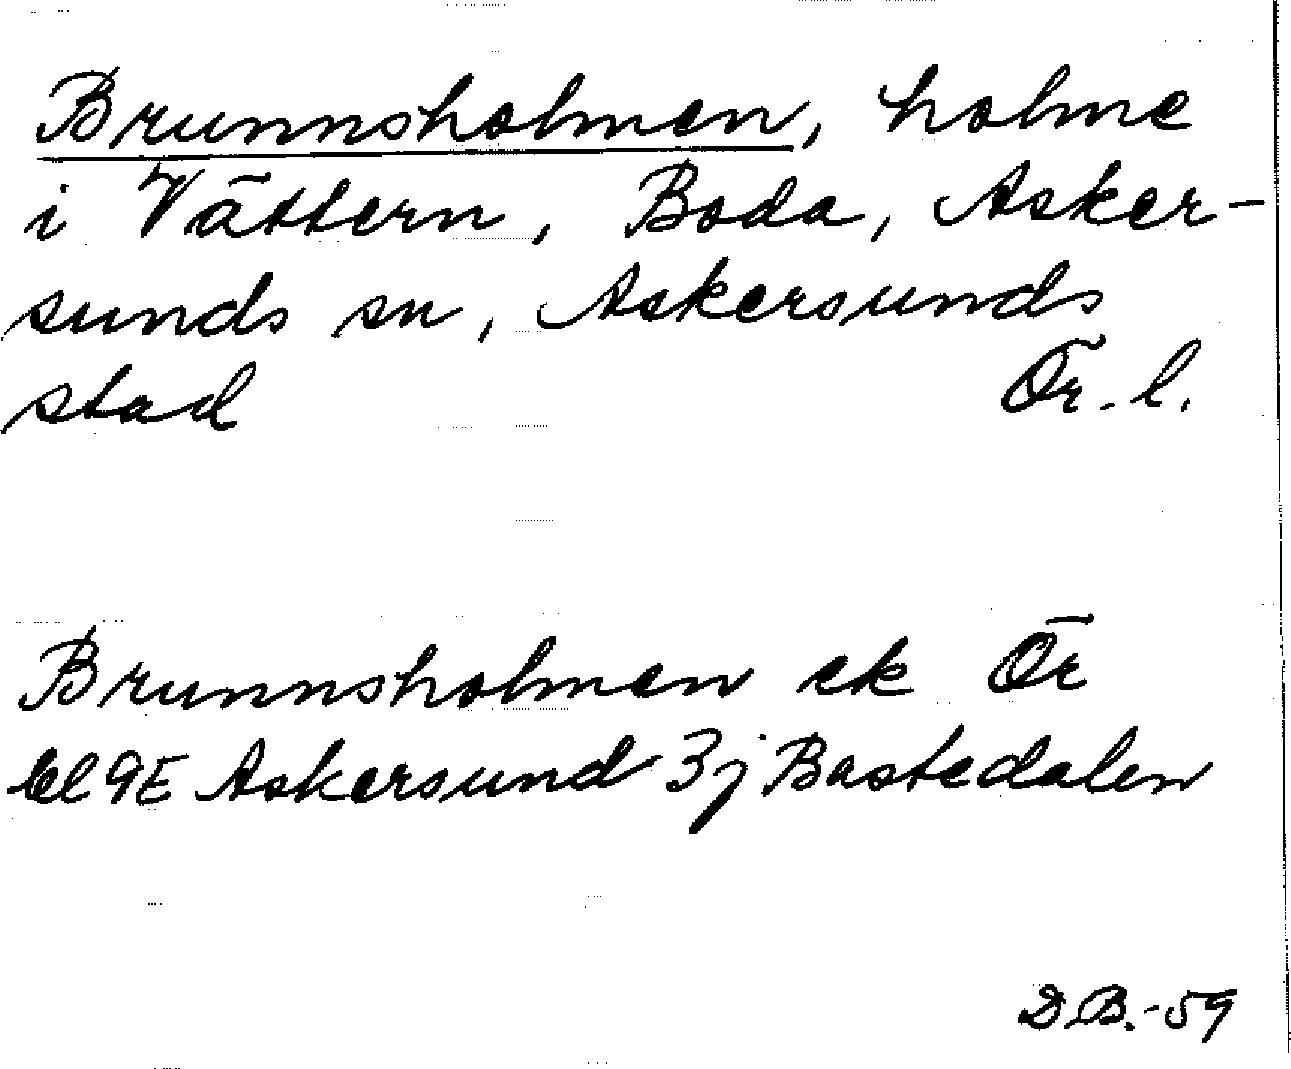 Brunnsholmen, holme
i Vättern, Boda, Asker-
sunds sn, Askersunds
stad Ör. l.
Brunnsholmen ek Ör
bl 9E Askersund 3j Bastedalen
D.B.-59